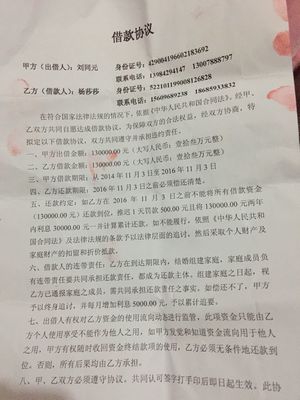 借款协议
甲方（出借人）：刘同元 身份证号：429004196602183692
联系电话：13984294147 13007888797
乙方（借款人）：杨莎莎 身份证号：522101199008126828
联系电话：15609689238 18685933832
在符合国家法律法规的情况下，依据《中华人民共和国合同法》，经甲、
乙双方共同自愿达成借款协议，为保障双方的合法权益，经双方协商，特
拟定以下借款协议，双方共同遵守并承担违约责任。
一、甲方出借金额：130000.00 元（大写人民币：壹拾叁万元整）
二、乙方借款金额：130000.00 元（大写人民币：壹拾叁万元整）
三、甲方借款期限：从 2014 年 11 月 3 日至 2016 年 11 月 3 日
四、乙方还款期限：2016 年 11 月 3 日之前必须偿还清楚。
五、还款约定：如乙方在 2016 年 11 月 3 日之前不能将所有借款资金
（130000.00 元）还款到位，推迟 1 天罚款 500.00 元且将 130000.00 元两年
内利息 30000.00 元一并计算累计还款，如不能履行，依照《中华人民共和
国合同法》及法律法规的条款予以法律层面的追讨，然后采取个人财产及
家庭财产的扣留和折价抵款。
六、借款人的连带责任：乙方在到达期限内，结婚组建家庭，家庭成员负
有连带责任要共同承担还款责任，都成为还款主体，组建家庭之日起，视
乙方已通报家庭之成员，需共同承担还款责任之事实，如偿还不了，甲方
予以终身追讨，并每月增加利息 5000.00 元，予以累计追要。
七、出借人有权对乙方资金的使用流向动态进行监管，此项资金只能由乙
方个人使用享受不能作为他人之用，如甲方发觉和知道资金流向用于他人
之用，甲方有权随时收回资金终结款项的使用，乙方必须无条件地还款到
位。否则，所有后果均由乙方承担。
八、甲、乙双方必须遵守协议，共同认可签字打手印后即日起生效。此协